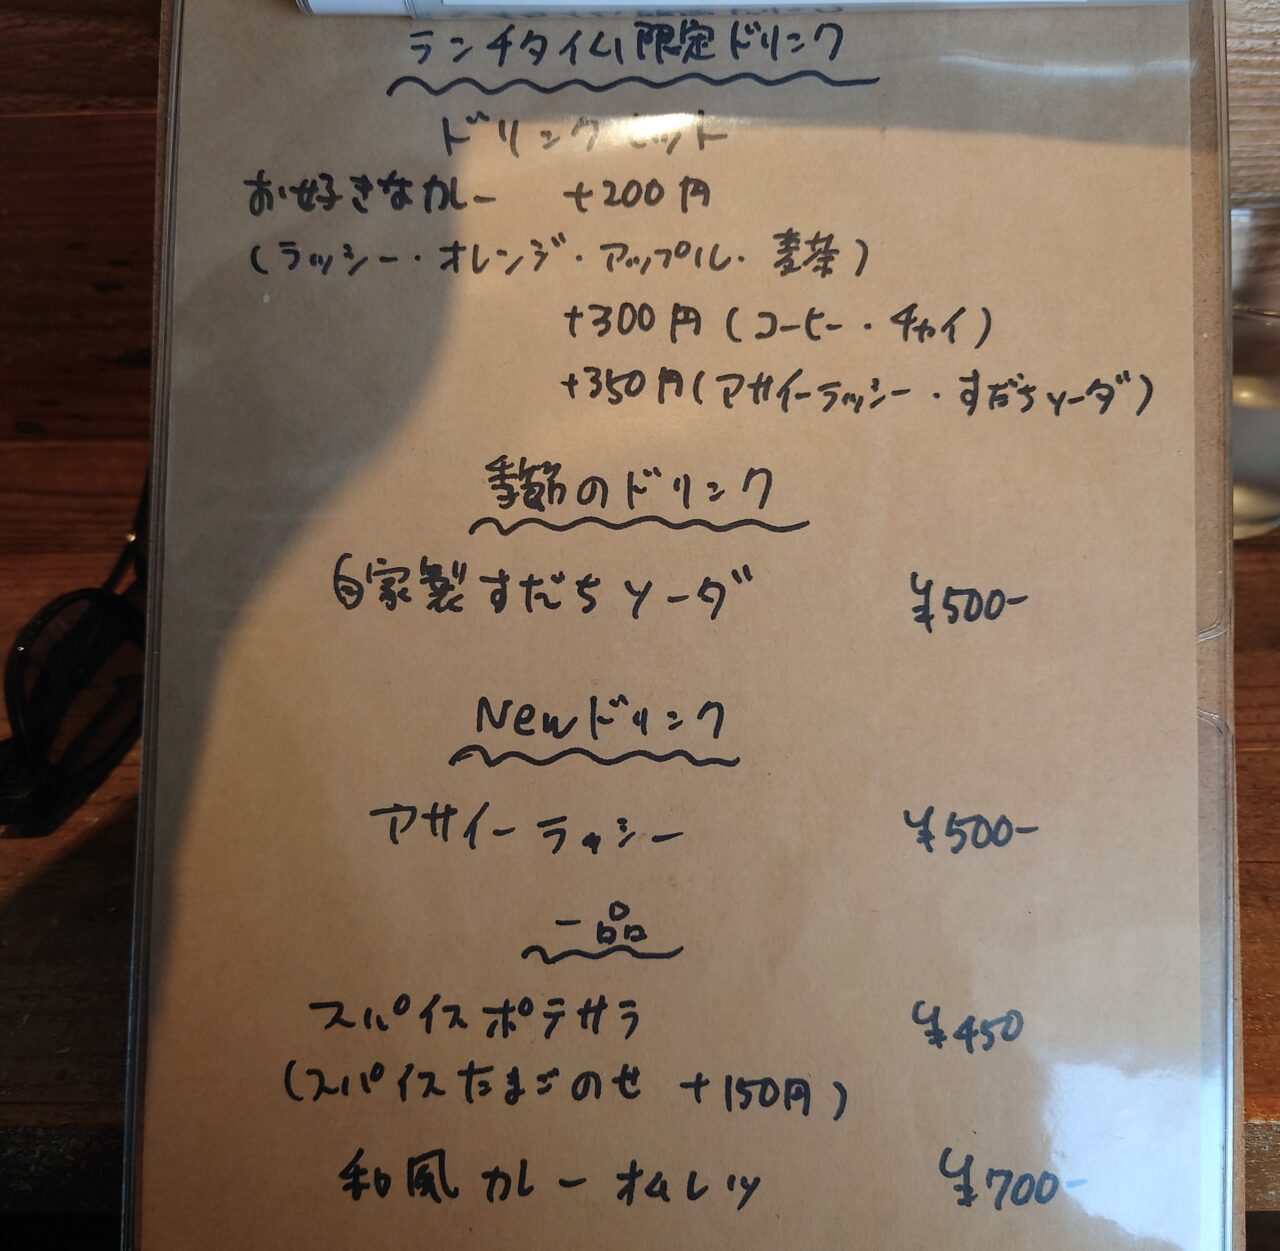 ランチタイム限定ドリンク
ドリンクセット
お好きなカレー +200円
(ラッシー・オレンジ・アップル・麦茶)
+300円(コーヒー・チャイ)
+350円(アサイーラッシー・すだちソーダ)
季節のドリンク
自家製すだちソーダ ¥500-
Newドリンク
アサイーラッシー ¥500-
一品
スパイスポテサラ ¥450
(スパイスたまごのせ +150円)
和風カレーオムレツ ¥700-